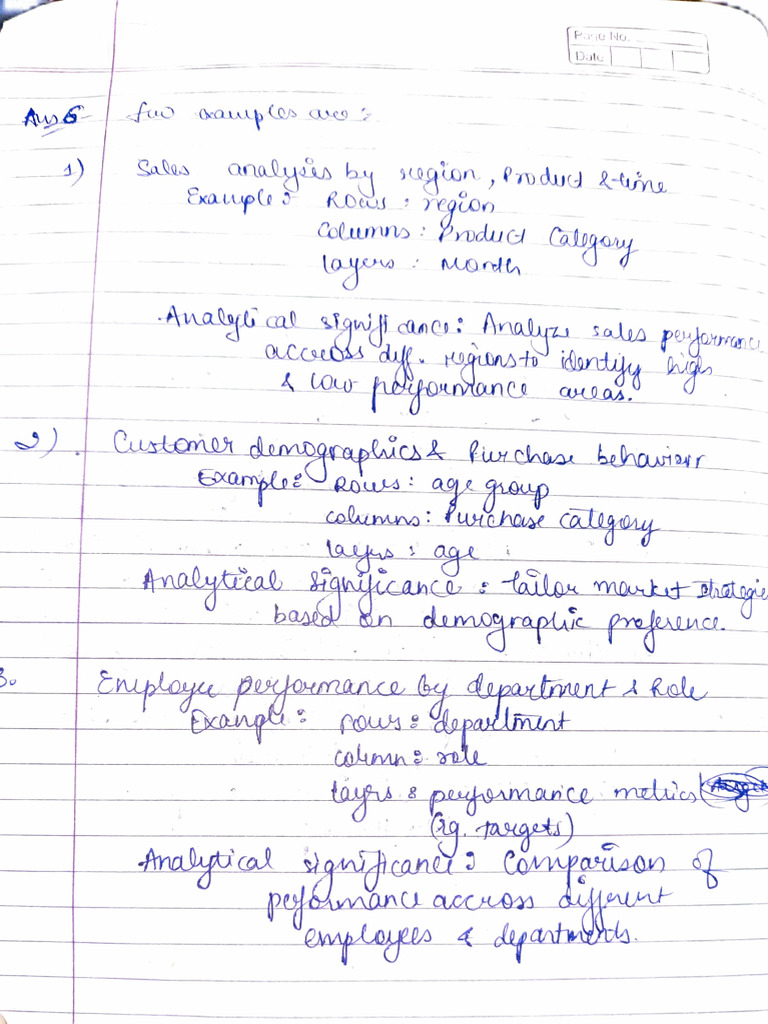 Page No.
Date
Ans 6 few examples are:
1) Sales analysis by region, Product & time
Example: Rows: region
Columns: Product Category
layers: Month
Analytical significance: Analyze sales performance
accross diff. regions to identify high
& low performance areas.
2) Customer demographics & Purchase behaviour
Example: Rows: age group
columns: Purchase category
layers: age
Analytical significance: tailor market strategie
based on demographic preference.
3. Employee performance by department & Role
Example: rows: department
column: role
layers: performance metrics
(eg. targets)
Analytical significance: Comparison of
performance accross different
employees & departments.